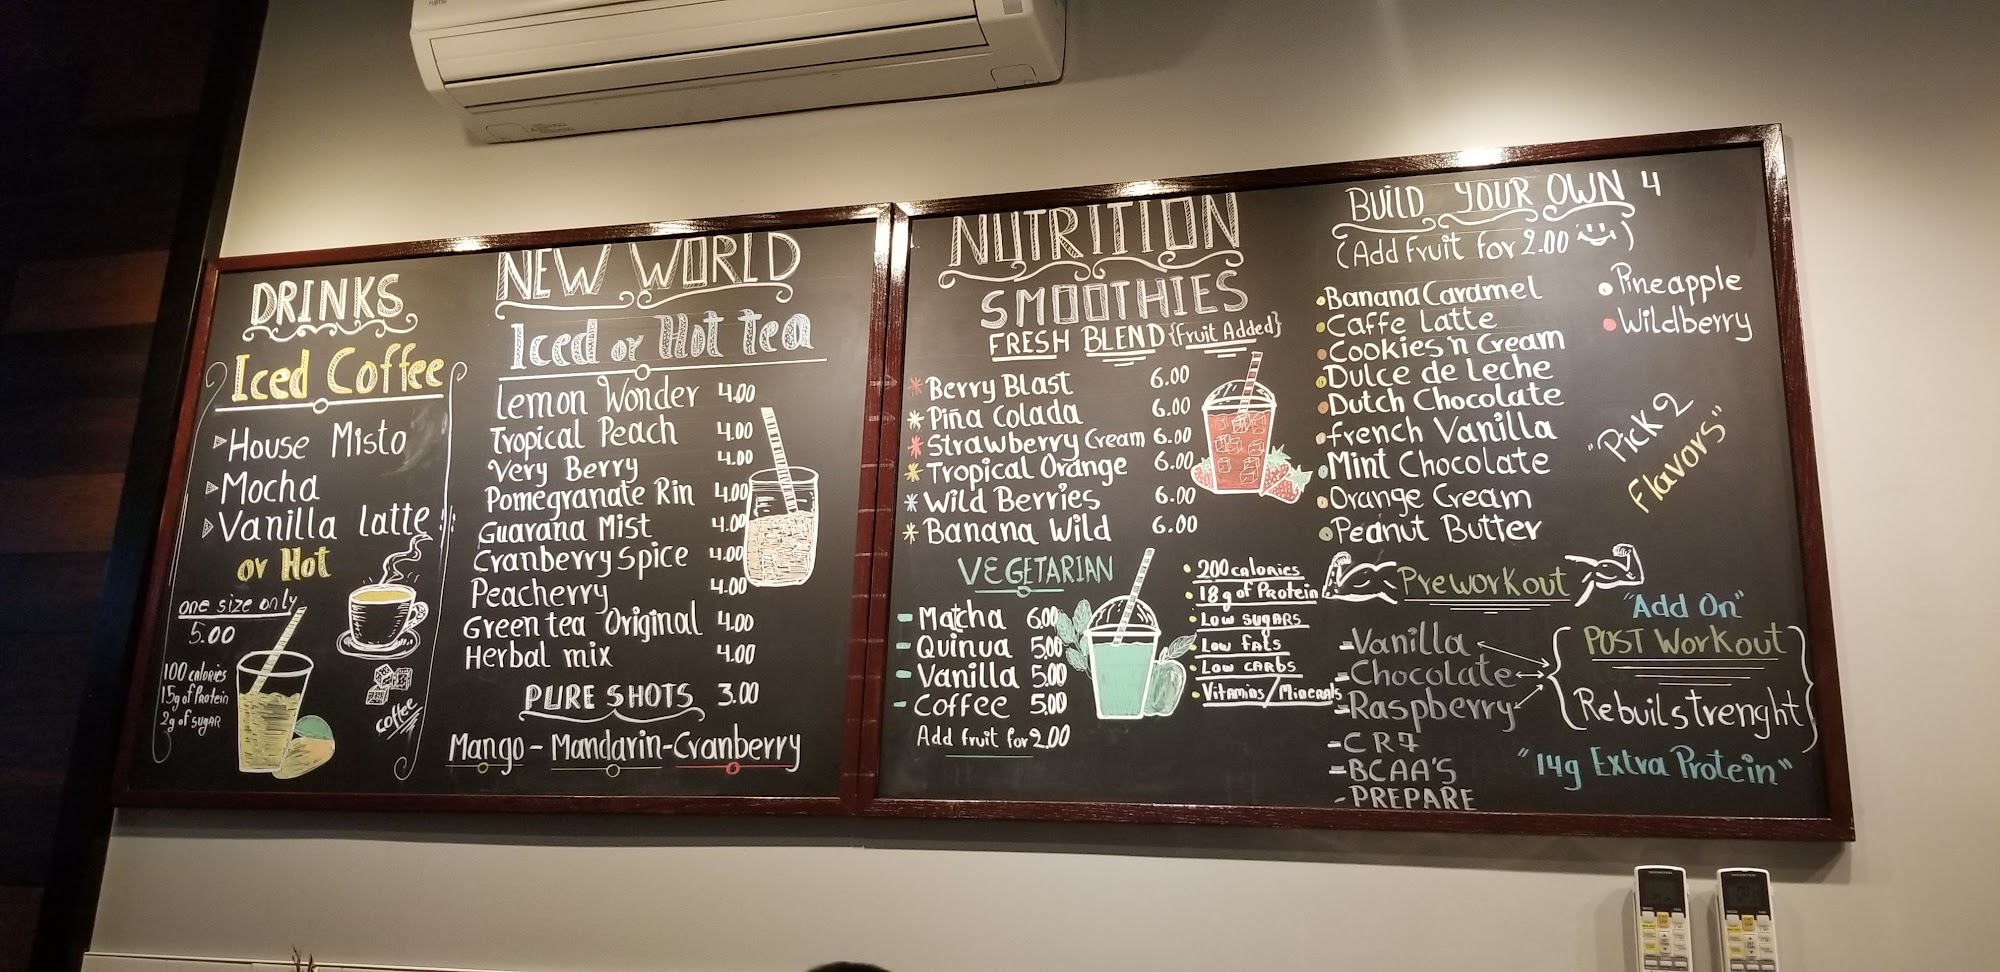 FUJITSU
DRINKS
Iced Coffee
House Misto
Mocha
Vanilla latte
or Hot
one size only
5.00
100 calories
15g of Protein
2g of SUGAR
coffee
NEW WORLD
Iced or Hot tea
Lemon Wonder 4.00
Tropical Peach 4.00
Very Berry 4.00
Pomegranate Rin 4.00
Guarana Mist 4.00
Cranberry Spice 4.00
Peacherry 4.00
Green tea Original 4.00
Herbal mix 4.00
PURE SHOTS 3.00
Mango - Mandarin - Cranberry
NUTRITION
SMOOTHIES
FRESH BLEND {Fruit Added}
* Berry Blast 6.00
* Piña Colada 6.00
* Strawberry Cream 6.00
* Tropical Orange 6.00
* Wild Berries 6.00
* Banana Wild 6.00
VEGETARIAN
- Matcha 6.00
- Quinua 5.00
- Vanilla 5.00
- Coffee 5.00
Add fruit for 2.00
• 200 calories
• 18g of Protein
• Low sugars
• Low fats
• Low carbs
• Vitamins/Minerals
BUILD YOUR OWN 4
(Add fruit for 2.00)
• Banana Caramel
• Caffe Latte
• Cookies 'n Cream
• Dulce de Leche
• Dutch Chocolate
• french Vanilla
• Mint Chocolate
• Orange Cream
• Peanut Butter
• Pineapple
• Wildberry
"Pick 2
Flavors"
Preworkout
- Vanilla
- Chocolate
- Raspberry
- CR7
- BCAA'S
- PREPARE
"Add On"
POST Workout
Rebuilstrenght
"14g Extra Protein"